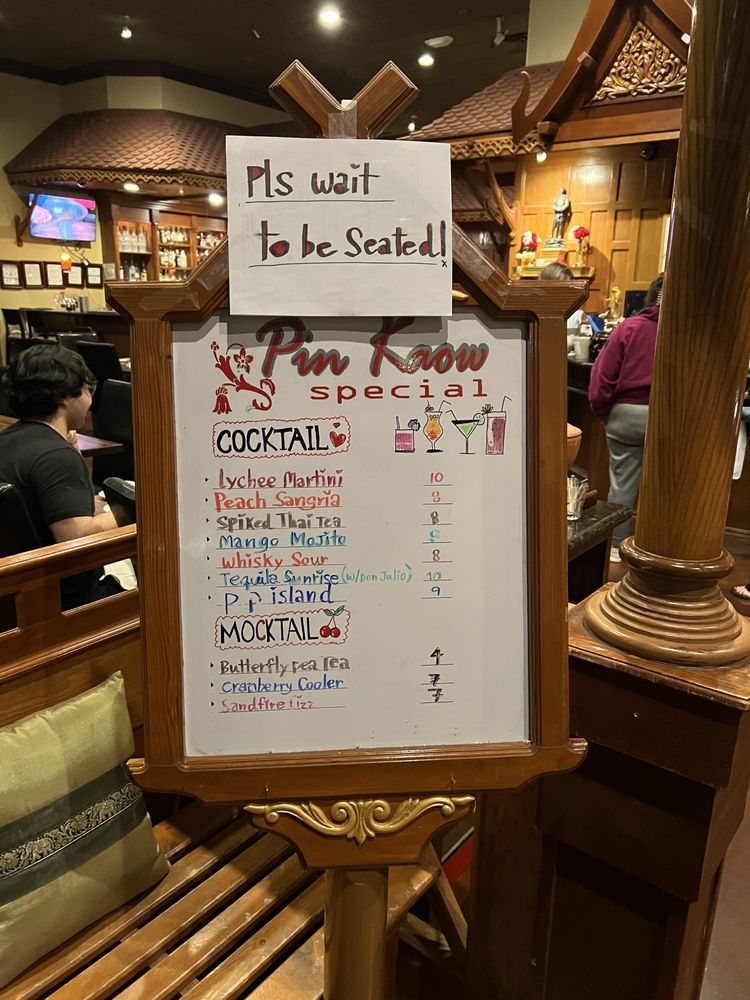 Pls wait
to be Seated!
Pin Kaow
special
COCKTAIL
Lychee Martini 10
Peach Sangria 8
Spiked Thai Tea 8
Mango Mojito 8
Whisky Sour 8
Tequila Sunrise (w/Don Julio) 10
P P island 9
MOCKTAIL
Butterfly pea Tea 4
Cranberry Cooler 7
Sandfire Fizz 7